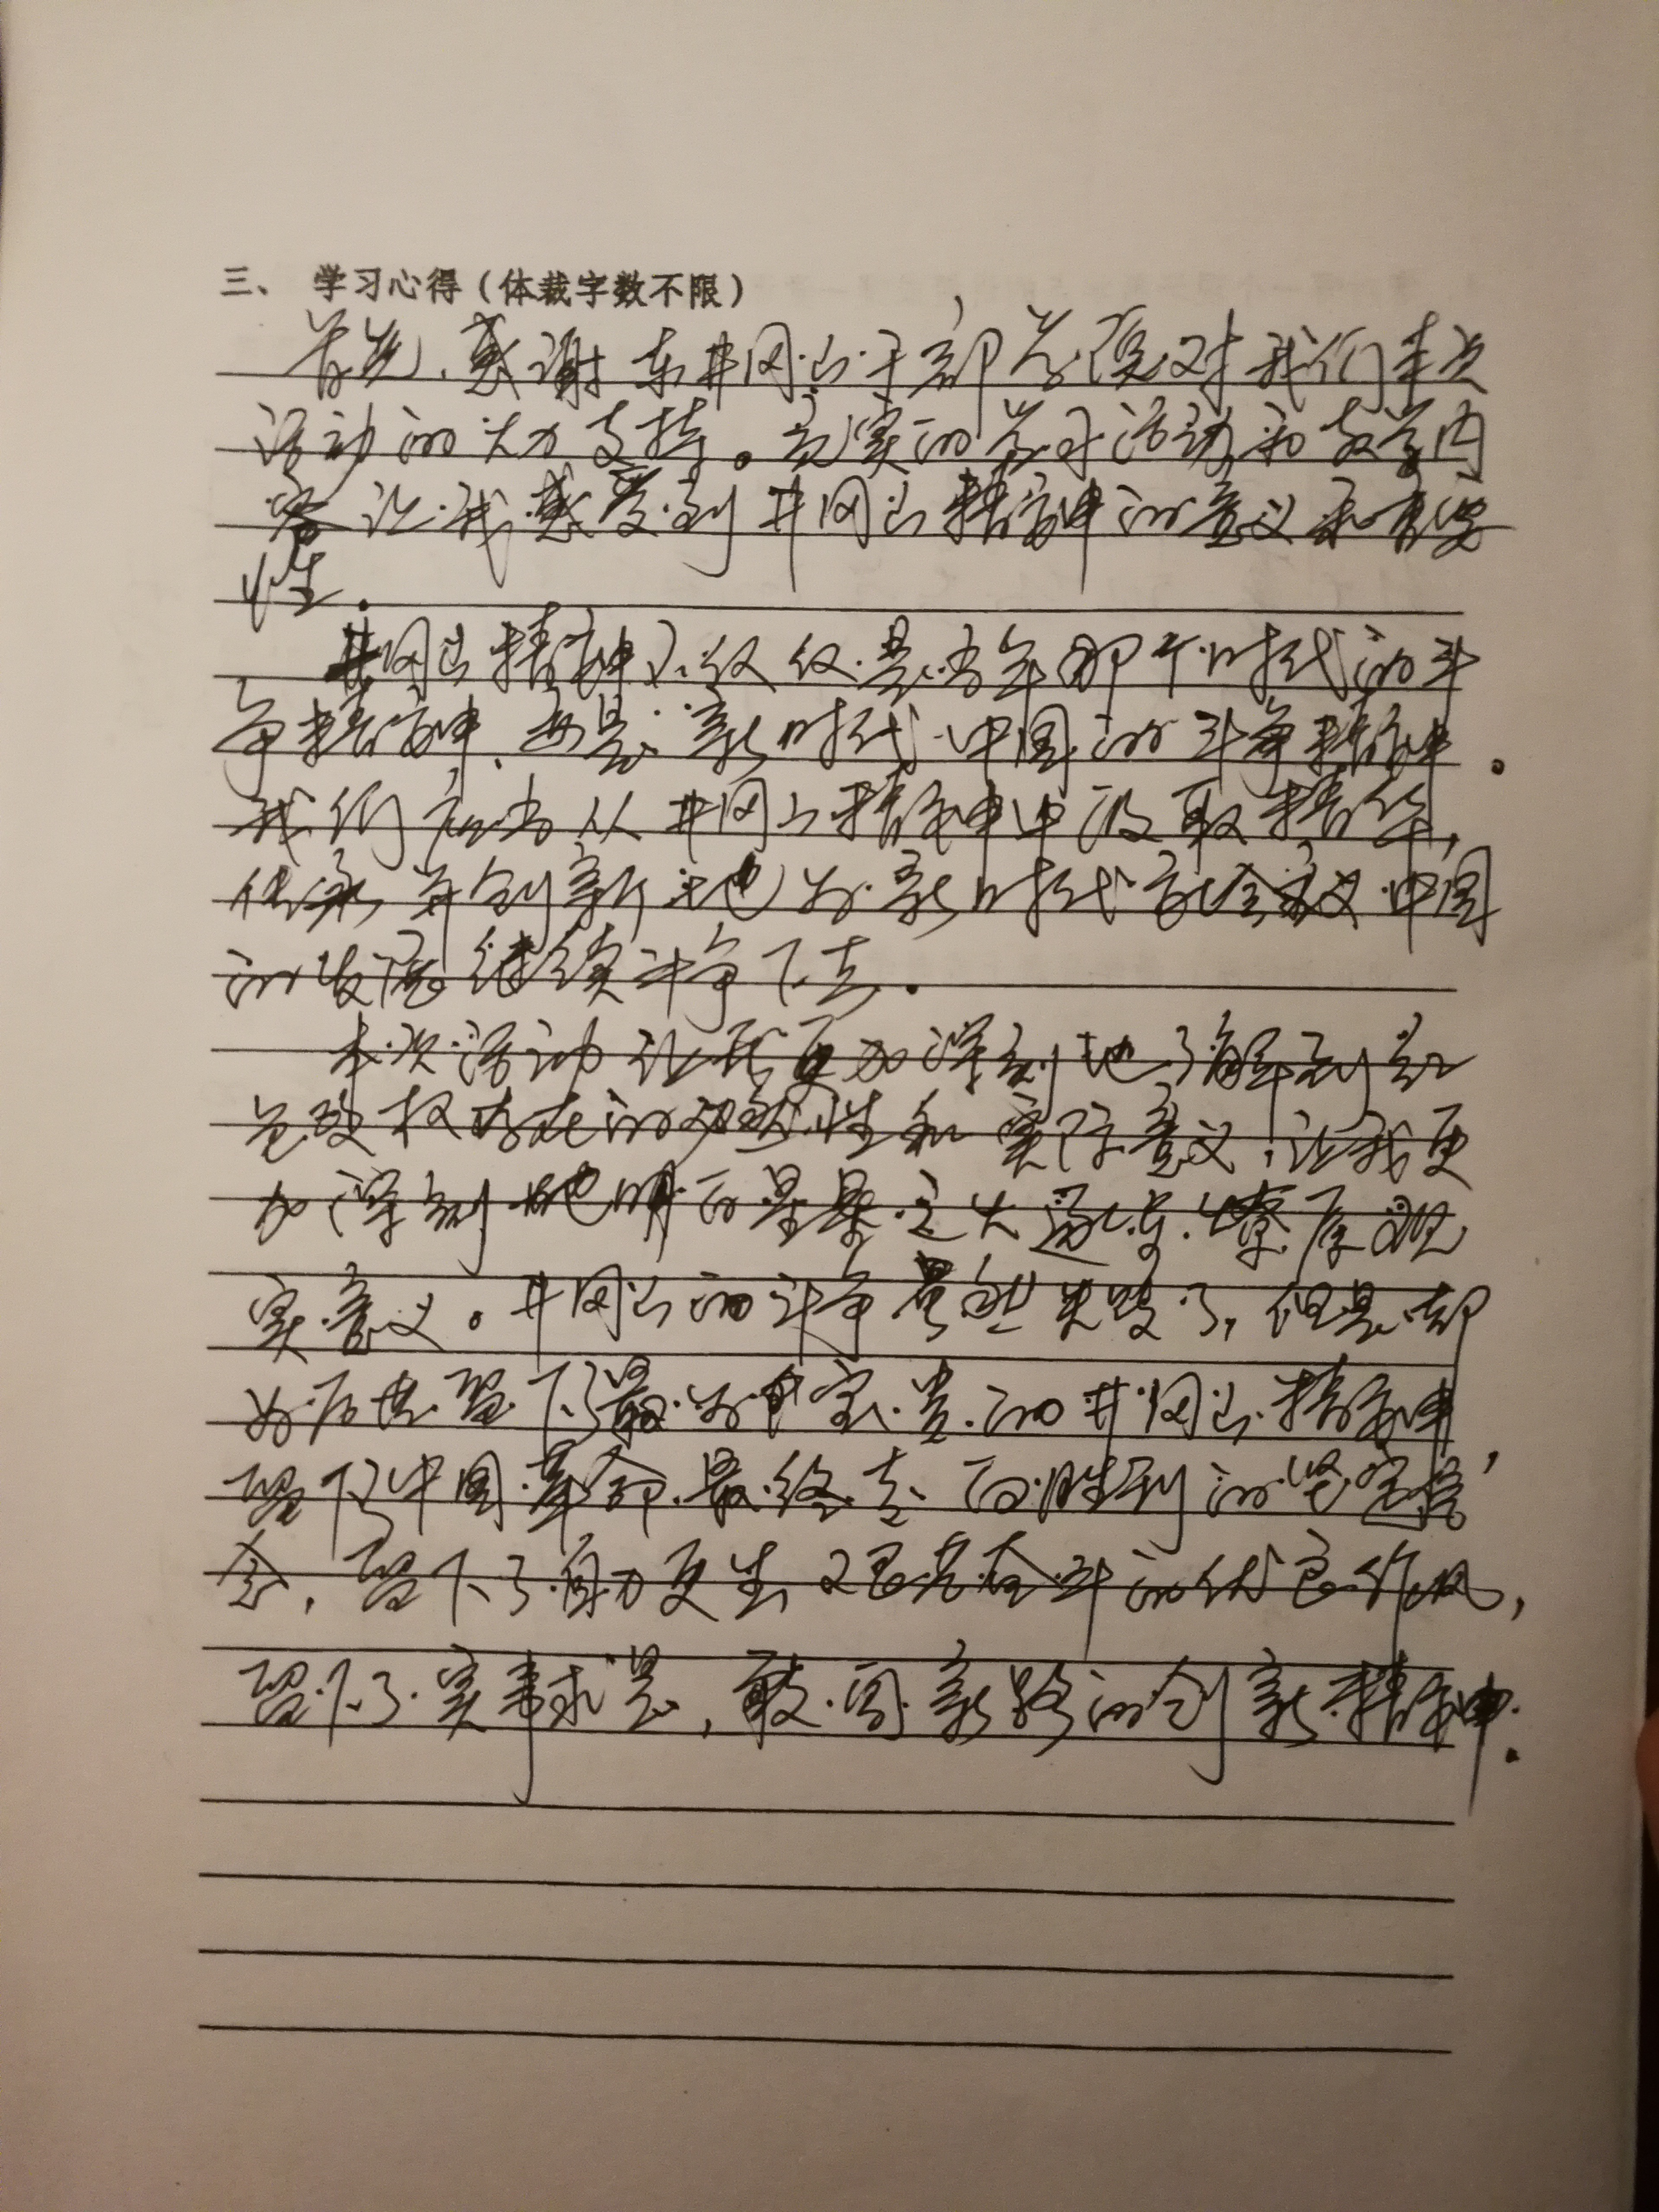 三、 学习心得（体裁字数不限）
首先，感谢东井冈山干部学院对我们本次
活动的大力支持。充实的学习活动和教学内
容让我感受到井冈山精神的意义和重要
性.
井冈山精神不仅仅是当年那个时代的斗
争精神，也是新时代中国的斗争精神。
我们应当从井冈山精神中汲取精华，
传承并创新地为新时代社会主义中国
的发展继续斗争下去.
本次活动让我更加深刻地了解到红
色政权存在的必然性和实际意义，让我更
加深刻地明白星星之火可以燎原现
实意义。井冈山的斗争虽然失败了，但是却
为后世留下了最为宝贵的井冈山精神，
留下了中国革命最终走向胜利的坚定信
念，留下了自力更生艰苦奋斗的优良作风，
留下了实事求是，敢闯新路的创新精神.